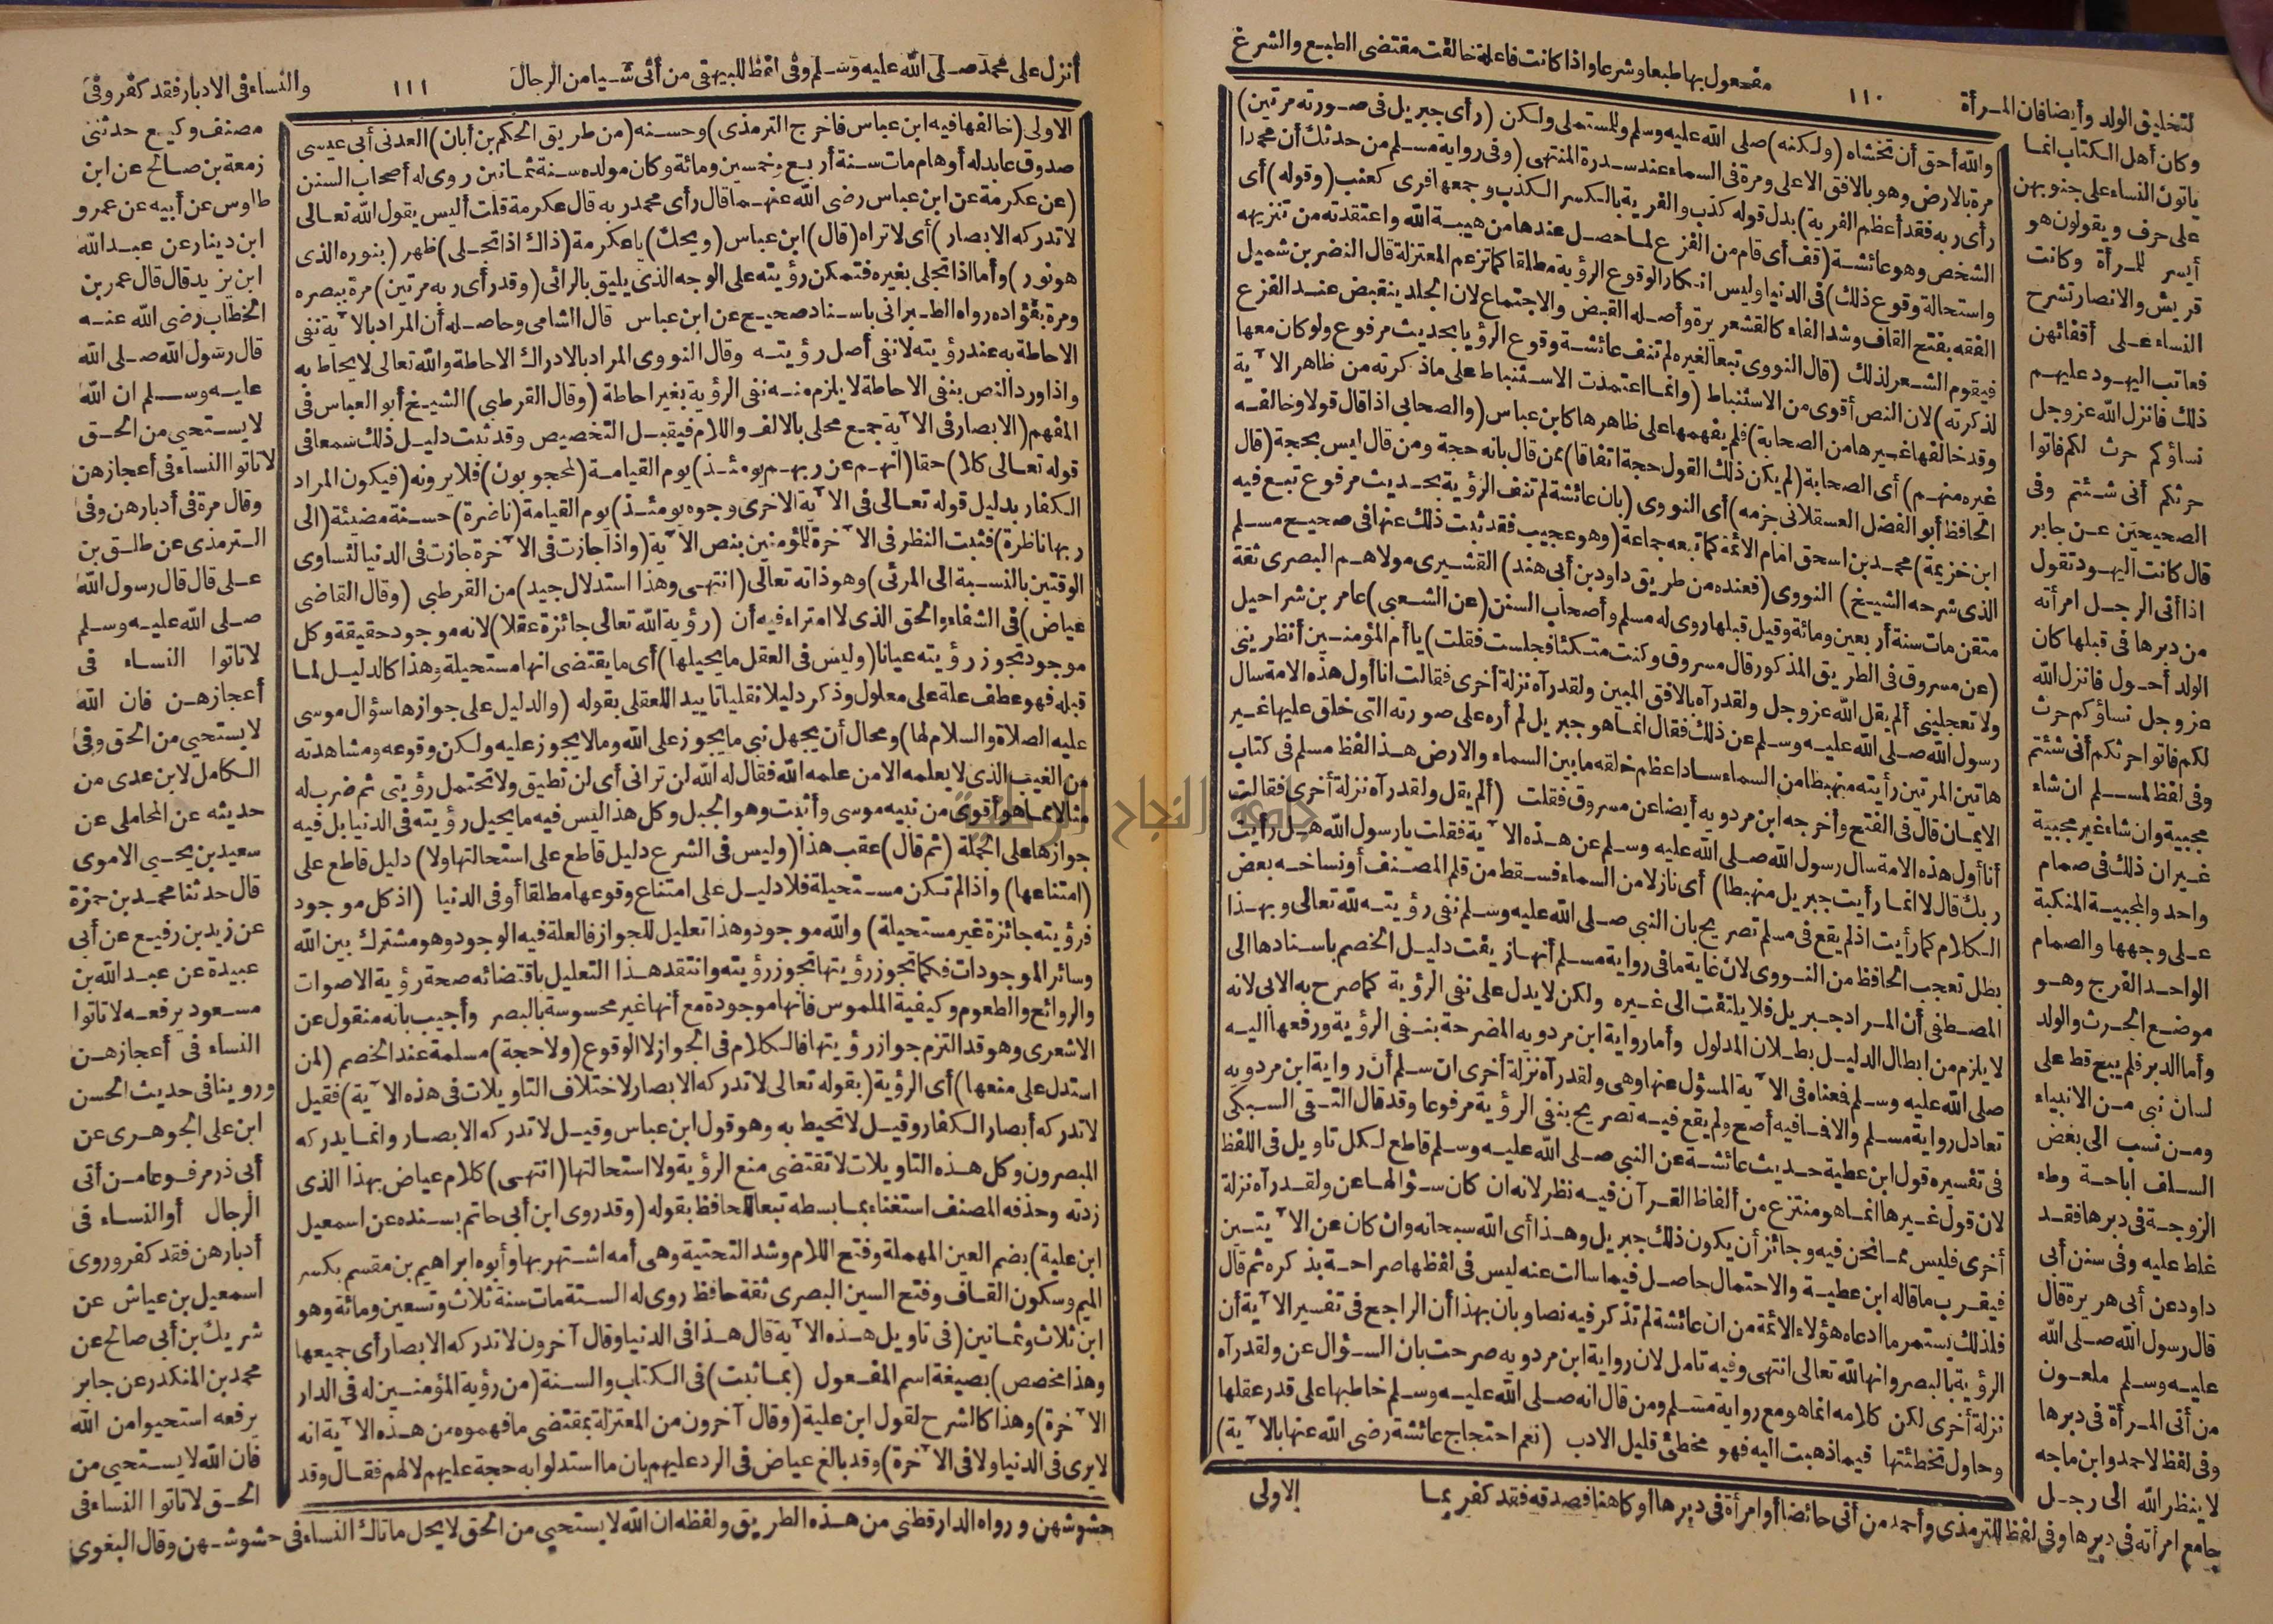 لتخليق الولد وأيضافان المرأة ١١٠ مفعول بها طبعا وشرعا واذا كانت فاعلة خالفت مقتضى الطبع والشرع
وكان أهل الكتاب انما
ياتون النساء على جنوبهن
على حرف ويقولون هو
أيسر للمرأة وكانت
قريش والانصار تشرح
النساء على أقفائهن
فعابت اليهود عليهم
ذلك فانزل الله عز وجل
نساؤكم حرث لكم فاتوا
حرثكم أنى شئتم وفى
الصحيحين عن جابر
قال كانت اليهود تقول
اذا أتى الرجل امرأته
من دبرها فى قبلها كان
الولد أحول فانزل الله
عز وجل نساؤكم حرث
لكم فاتوا حرثكم أنى شئتم
وفى لفظ لمسلم ان شاء
مجبية وان شاء غير مجبية
غير ان ذلك فى صمام
واحد والمجبية المنكبة
على وجهها والصمام
الواحد الفرج وهو
موضع الحرث والولد
وأما الدبر فلم يبح قط على
لسان نبى من الانبياء
ومن نسب الى بعض
السلف اباحة وطء
الزوجة فى دبرها فقد
غلط عليه وفى سنن أبى
داود عن أبى هريرة قال
قال رسول الله صلى الله
عليه وسلم ملعون
من أتى المرأة فى دبرها
وفى لفظ لاحمد وابن ماجه
لا ينظر الله الى رجل
جامع امرأته فى دبرها وفى لفظ للترمذى وأحمد من أتى حائضا أو امرأة فى دبرها أو كاهنا فصدقه فقد كفر بما
والله أحق أن تخشاه (ولكنه) صلى الله عليه وسلم وللمستملى ولكن (رأى جبريل فى صورته مرتين)
مرة بالارض وهو بالافق الاعلى ومرة فى السماء عند سدرة المنتهى (وفى رواية مسلم من حدثك أن محمدا
رأى ربه فقد أعظم الفرية) بدل قوله كذب والفرية بالكسر الكذب وجمعها فرى كعنب (وقوله) أى
الشخص وهو عائشة (قف أى قام من الفزع لما حصل عندها من هيبة الله واعتقدته من تنزيهه
واستحالة وقوع ذلك) فى الدنيا وليس انكار الوقوع الرؤية مطلقا كما تزعم المعتزلة قال النضر بن شميل
الفقه بفتح القاف وشد الفاء كالقشعريرة وأصله القبض والاجتماع لان الجلد ينقبض عند الفزع
فيقوم الشعر لذلك (قال النووى تبعا لغيره لم تنف عائشة وقوع الرؤيا بحديث مرفوع ولو كان معها
لذكرته) لان النص أقوى من الاستنباط (وانما اعتمدت الاستنباط على ماذكرته من ظاهر الآية
وقد خالفها غيرها من الصحابة) فلم يفهمها على ظاهرها كابن عباس (والصحابى اذا قال قولا وخالفه
غيره منهم) أى الصحابة (لم يكن ذلك القول حجة اتفاقا) ممن قال بانه حجة ومن قال ليس بحجة (قال
الحافظ أبو الفضل العسقلانى جزمه) أى النووى (بان عائشة لم تنف الرؤية بحديث مرفوع تبع فيه
ابن خزيمة) محمد بن اسحق امام الائمة كما تبعه جماعة (وهو عجيب فقد ثبت ذلك عنها فى صحيح مسلم
الذى شرحه الشيخ) النووى (فعنده من طريق داود بن أبى هند) القشيرى مولاهم البصرى ثقة
متقن مات سنة أربعين ومائة وقيل قبلها روى له مسلم وأصحاب السنن (عن الشعبى) عامر بن شراحيل
(عن مسروق فى الطريق المذكور قال مسروق وكنت متكئا فجلست فقلت) يا أم المؤمنين أنظرينى
ولا تعجلينى ألم يقل الله عز وجل ولقد رآه بالافق المبين ولقد رآه نزلة أخرى فقالت انا أول هذه الامة سال
رسول الله صلى الله عليه وسلم عن ذلك فقال انما هو جبريل لم أره على صورته التى خلق عليها غير
هاتين المرتين رأيته منهبطا من السماء سادا عظم خلقه ما بين السماء والارض هذا لفظ مسلم فى كتاب
الايمان قال فى الفتح وأخرجه ابن مردويه أيضا عن مسروق فقلت (ألم يقل ولقد رآه نزلة أخرى فقالت
أنا أول هذه الامة سال رسول الله صلى الله عليه وسلم عن هذه الآية فقلت يا رسول الله هل رأيت
ربك قال لا انما رأيت جبريل منهبطا) أى نازلا من السماء فسقط من قلم المصنف أو نساخه بعض
الكلام كما رأيت اذ لم يقع فى مسلم تصريح بان النبى صلى الله عليه وسلم نفى رؤيته لله تعالى وبهذا
بطل تعجب الحافظ من النووى لان غاية ما فى رواية مسلم أنها زيفت دليل الخصم باسنادها الى
المصطفى أن المراد جبريل فلا يلتفت الى غيره ولكن لا يدل على نفى الرؤية كما صرح به الابى لانه
لا يلزم من ابطال الدليل بطلان المدلول وأما رواية ابن مردويه المصرحة بنفى الرؤية ورفعها اليه
صلى الله عليه وسلم فعناه فى الآية المسؤل عنها وهى ولقد رآه نزلة أخرى ان سلم أن رواية ابن مردويه
تعادل رواية مسلم والا فما فيه أصح ولم يقع فيه تصريح بنفى الرؤية مرفوعا وقد قال التقى السبكى
فى تفسيره قول ابن عطية حديث عائشة عن النبى صلى الله عليه وسلم قاطع لكل تاويل فى اللفظ
لان قول غيرها انما هو منتزع من ألفاظ القرآن فيه نظر لانه ان كان سؤالها عن ولقد رآه نزلة
أخرى فليس مما نحن فيه وجائز أن يكون ذلك جبريل وهذا أى الله سبحانه وان كان عن الآيتين
فيقرب ما قاله ابن عطية والاحتمال حاصل فيما سالت عنه ليس فى لفظها صراحة بذكره ثم قال
فلذلك يستمر ما ادعاه هؤلاء الائمة من ان عائشة لم تذكر فيه نصا وبان بهذا أن الراجح فى تفسير الآية أن
الرؤية بالبصر وانها لله تعالى انتهى وفيه تامل لان رواية ابن مردويه صرحت بان السؤال عن ولقد رآه
نزلة أخرى لكن كلامه انما هو مع رواية مسلم ومن قال انه صلى الله عليه وسلم خاطبها على قدر عقلها
وحاول تخطئتها فيما ذهبت اليه فهو مخطئ قليل الادب (نعم احتجاج عائشة رضى الله عنها بالآية)
الاولى
أنزل على محمد صلى الله عليه وسلم وفى لفظ للبيهقى من أتى شيا من الرجال ١١١ والنساء فى الادبار فقد كفر وفى
الاولى (خالفها فيه ابن عباس فاخرج الترمذى) وحسنه (من طريق الحكم بن أبان) العدنى أبى عيسى
صدوق عابد له أوهام مات سنة أربع وخمسين ومائة وكان مولده سنة ثمانين روى له أصحاب السنن
(عن عكرمة عن ابن عباس رضى الله عنهما قال رأى محمد ربه قال عكرمة قلت أليس يقول الله تعالى
لا تدركه الابصار) أى لا تراه (قال) ابن عباس (ويحك) يا عكرمة (ذاك اذا تجلى) ظهر (بنوره الذى
هو نور) وأما اذا تجلى بغيره فتمكن رؤيته على الوجه الذى يليق بالرائى (وقد رأى ربه مرتين) مرة ببصره
ومرة بفؤاده رواه الطبرانى باسناد صحيح عن ابن عباس قال الشامى وحاصله أن المراد بالآية نفى
الاحاطة به عند رؤيته لا نفى أصل رؤيته وقال النووى المراد بالادراك الاحاطة والله تعالى لا يحاط به
واذا ورد النص بنفى الاحاطة لا يلزم منه نفى الرؤية بغير احاطة (وقال القرطبى) الشيخ أبو العباس فى
المفهم (الابصار فى الآية جمع محلى بالالف واللام فيقبل التخصيص وقد ثبت دليل ذلك سمعا فى
قوله تعالى كلا) حقا (انهم عن ربهم يومئذ) يوم القيامة (لمحجوبون) فلا يرونه (فيكون المراد
الكفار بدليل قوله تعالى فى الآية الاخرى وجوه يومئذ) يوم القيامة (ناضرة) حسنة مضيئة (الى
ربها ناظرة) فثبت النظر فى الآخرة للمؤمنين بنص الآية (واذا جازت فى الآخرة جازت فى الدنيا لتساوى
الوقتين بالنسبة الى المرئى) وهو ذاته تعالى (انتهى وهذا استدلال جيد) من القرطبى (وقال القاضى
عياض) فى الشفاء والحق الذى لا امتراء فيه أن (رؤية الله تعالى جائزة عقلا) لانه موجود حقيقة وكل
موجود تجوز رؤيته عيانا (وليس فى العقل ما يحيلها) أى ما يقتضى انها مستحيلة وهذا كالدليل لما
قبله فهو عطف علة على معلول وذكر دليلا نقليا تاييدا للعقلى بقوله (والدليل على جوازها سؤال موسى
عليه الصلاة والسلام لها) ومحال أن يجهل نبى ما يجوز على الله وما لا يجوز عليه ولكن وقوعه ومشاهدته
من الغيب الذى لا يعلمه الا من علمه الله فقال له الله لن ترانى أى لن تطيق ولا تحتمل رؤيتى ثم ضرب له
مثلا بما هو أقوى من نبيه موسى وأثبت وهو الجبل وكل هذا ليس فيه ما يحيل رؤيته فى الدنيا بل فيه
جوازها على الجملة (ثم قال) عقب هذا (وليس فى الشرع دليل قاطع على استحالتها ولا) دليل قاطع على
(امتناعها) واذا لم تكن مستحيلة فلا دليل على امتناع وقوعها مطلقا أو فى الدنيا (اذ كل موجود
فرؤيته جائزة غير مستحيلة) والله موجود وهذا تعليل للجواز فالعلة فيه الوجود وهو مشترك بين الله
وسائر الموجودات فكما تجوز رؤيتها تجوز رؤيته وانتقد هذا التعليل باقتضائه صحة رؤية الاصوات
والروائح والطعوم وكيفية الملموس فانها موجودة مع أنها غير محسوسة بالبصر وأجيب بانه منقول عن
الاشعرى وهو قد التزم جواز رؤيتها فالكلام فى الجواز لا الوقوع (ولا حجة) مسلمة عند الخصم (لمن
استدل على منعها) أى الرؤية (بقوله تعالى لا تدركه الابصار لاختلاف التاويلات فى هذه الآية) فقيل
لا تدركه أبصار الكفار وقيل لا تحيط به وهو قول ابن عباس وقيل لا تدركه الابصار وانما يدركه
المبصرون وكل هذه التاويلات لا تقتضى منع الرؤية ولا استحالتها (انتهى) كلام عياض بهذا الذى
زدته وحذفه المصنف استغناء بما بسطه تبعا للحافظ بقوله (وقد روى ابن أبى حاتم بسنده عن اسمعيل
ابن علية) بضم العين المهملة وفتح اللام وشد التحتية وهى أمه اشتهر بها وأبوه ابراهيم بن مقسم بكسر
الميم وسكون القاف وفتح السين البصرى ثقة حافظ روى له الستة مات سنة ثلاث وتسعين ومائة وهو
ابن ثلاث وثمانين (فى تاويل هذه الآية قال هذا فى الدنيا وقال آخرون لا تدركه الابصار أى جميعها
وهذا مخصص) بصيغة اسم المفعول (بما ثبت) فى الكتاب والسنة (من رؤية المؤمنين له فى الدار
الآخرة) وهذا كالشرح لقول ابن علية (وقال آخرون من المعتزلة بمقتضى ما فهموه من هذه الآية انه
لا يرى فى الدنيا ولا فى الآخرة) وقد بالغ عياض فى الرد عليهم بان ما استدلوا به حجة عليهم لا لهم فقال وقد
مصنف وكيع حدثنى
زمعة بن صالح عن ابن
طاوس عن أبيه عن عمرو
ابن دينار عن عبد الله
ابن يزيد قال قال عمر بن
الخطاب رضى الله عنه
قال رسول الله صلى الله
عليه وسلم ان الله
لا يستحيى من الحق
لا تاتوا النساء فى أعجازهن
وقال مرة فى أدبارهن وفى
الترمذى عن طلق بن
على قال قال رسول الله
صلى الله عليه وسلم
لا تاتوا النساء فى
أعجازهن فان الله
لا يستحيى من الحق وفى
الكامل لابن عدى من
حديثه عن المحاملى عن
سعيد بن يحيى الاموى
قال حدثنا محمد بن حمزة
عن زيد بن رفيع عن أبى
عبيدة عن عبد الله بن
مسعود يرفعه لا تاتوا
النساء فى أعجازهن
وروينا فى حديث الحسن
ابن على الجوهرى عن
أبى ذر مرفوعا من أتى
الرجال أو النساء فى
أدبارهن فقد كفر وروى
اسمعيل بن عياش عن
شريك بن أبى صالح عن
محمد بن المنكدر عن جابر
يرفعه استحيوا من الله
فان الله لا يستحيى من
الحق لا تاتوا النساء فى
حشوشهن ورواه الدارقطنى من هذه الطريق ولفظه ان الله لا يستحيى من الحق لا يحل ماتاك النساء فى حشوشهن وقال البغوى
جامعة النجاح الوطنية